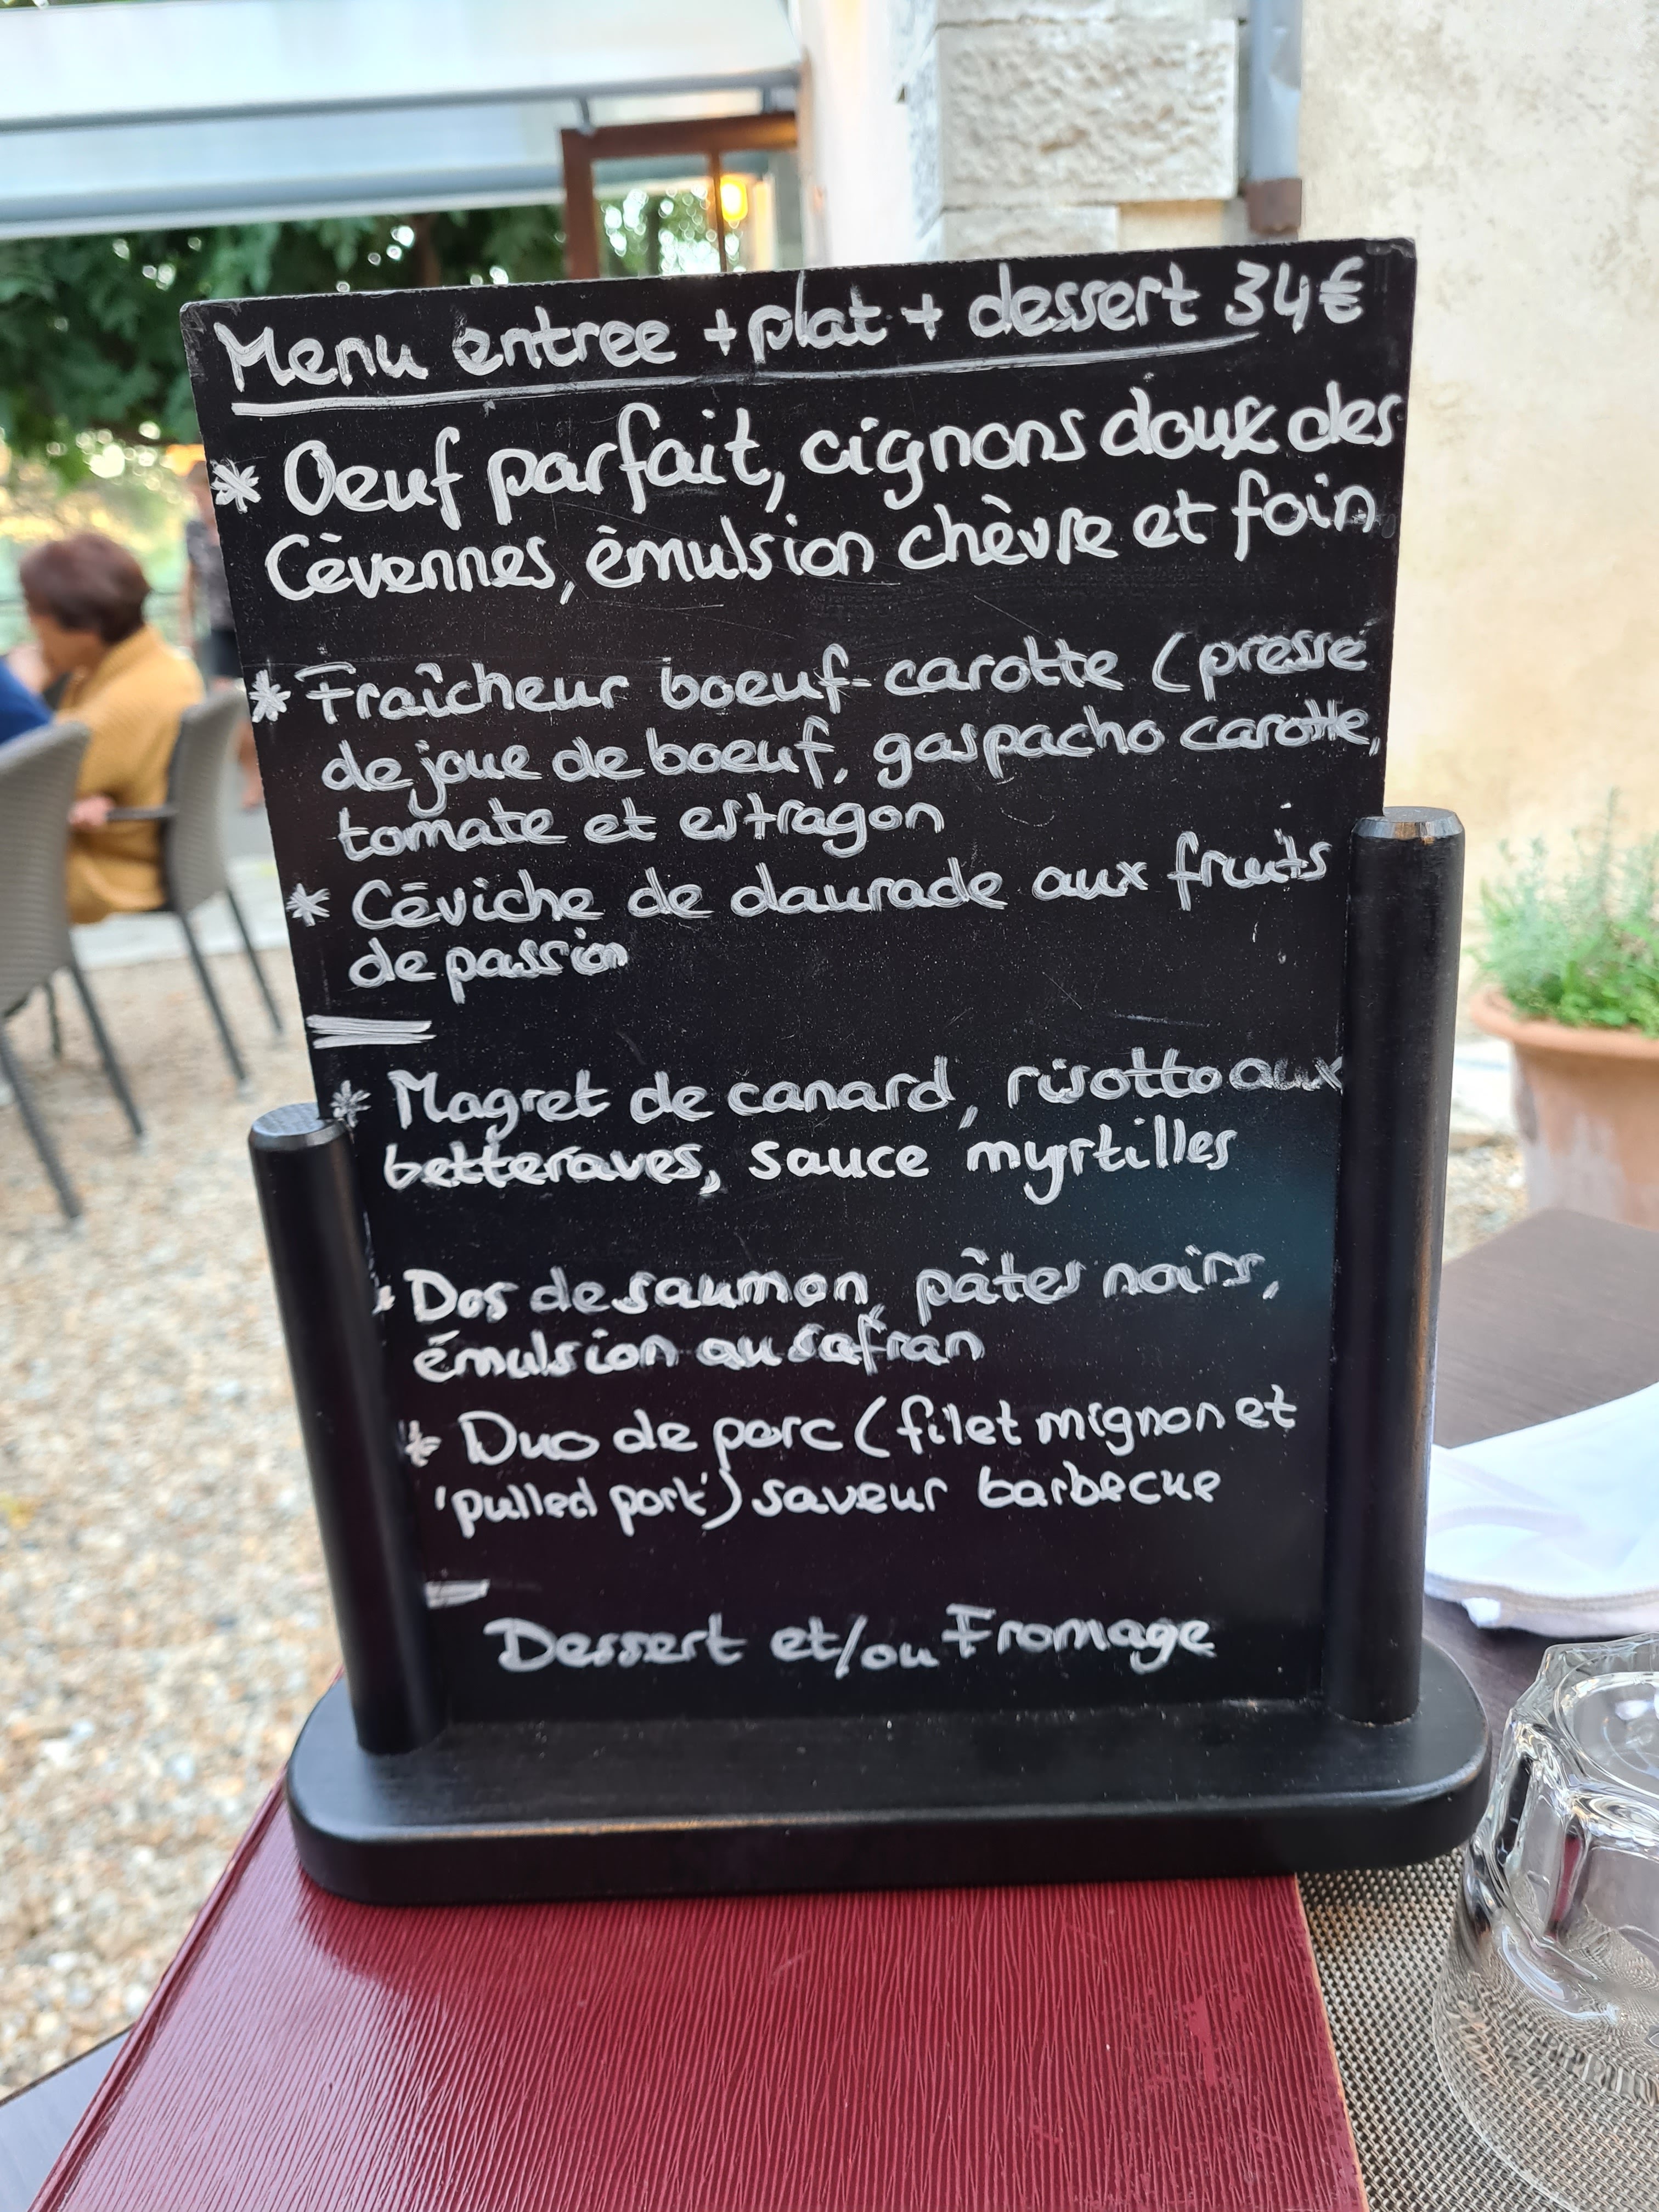 Menu entree + plat + dessert 34€
* Oeuf parfait, oignons doux des
Cèvennes, émulsion chèvre et foin
* Fraîcheur boeuf-carotte (pressé
de joue de boeuf, gaspacho carotte,
tomate et estragon
* Céviche de daurade aux fruits
de passion
* Magret de canard, risotto aux
betteraves, sauce myrtilles
* Dos de saumon, pâtes noirs,
émulsion au safran
* Duo de porc (filet mignon et
'pulled pork') saveur barbecue
Dessert et/ou Fromage